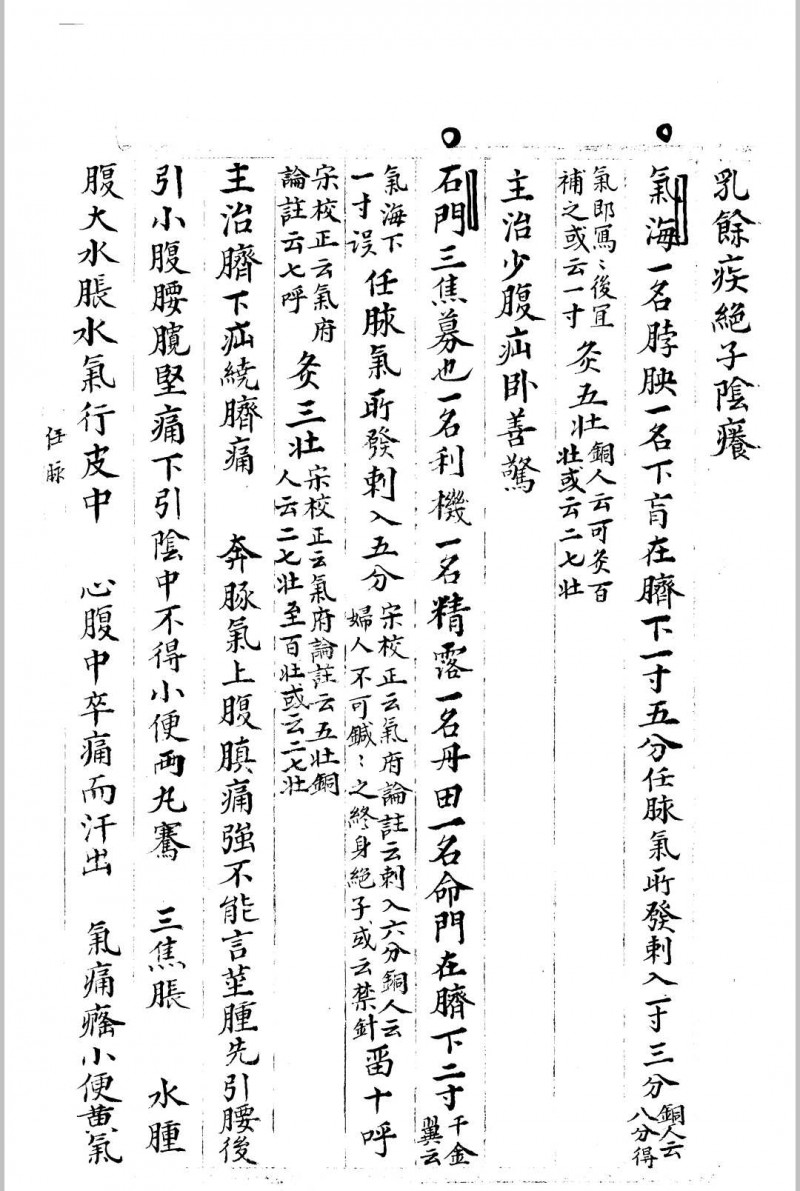 乳餘疾絕子陰癢
氣海一名脖胦一名下肓在臍下一寸五分任脉氣所發刺入一寸三分銅人云八分得
氣即寫〻後宜補之或云一寸灸五壯銅人云可灸百壯或云二七壯
主治少腹疝卧善驚
石門三焦募也一名利機一名精露一名丹田一名命門在臍下二寸千金翼云
氣海下一寸误任脉氣所發刺入五分宋校正云氣府論註云刺入六分銅人云婦人不可鍼〻之終身絕子或云禁針畱十呼
宋校正云氣府論註云七呼灸三壯宋校正云氣府論註云五壯銅人云二七壯至百壯或云二七壯
主治臍下疝繞臍痛 奔豚氣上腹䐜痛強不能言莖腫先引腰後
引小腹腰髖堅痛下引陰中不得小便兩丸騫 三焦脹 水腫
腹大水脹水氣行皮中 心腹中卒痛而汗出 氣痛癃小便黄氣
任脉